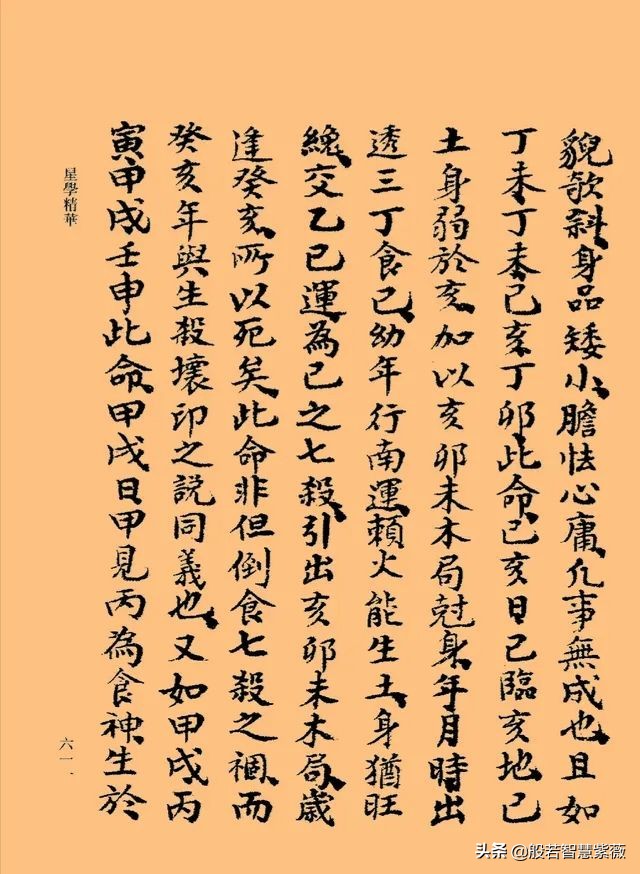 貌欹斜身品矮小膽怯心庸凡事無成也且如
丁未丁未己亥丁卯此命己亥日己臨亥地己
土身弱於亥加以亥卯未木局尅身年月時出
透三丁食己幼年行南運賴火能生土身猶旺
纔交乙巳運為己之七殺引出亥卯未木局歲
逢癸亥所以死矣此命非但倒食七殺之禍而
癸亥年與生殺壞印之說同義也又如甲戌丙
寅甲戌壬申此命甲戌日甲見丙為食神生於
星學精華
六一
头条 @般若智慧紫薇